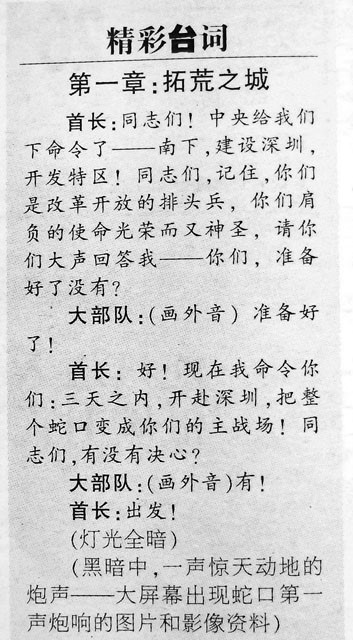 精彩台词
第一章:拓荒之城
首长:同志们！中央给我们
下命令了——南下,建设深圳,
开发特区！同志们,记住,你们
是改革开放的排头兵，你们肩
负的使命光荣而又神圣，请你
们大声回答我——你们，准备
好了没有？
大部队:(画外音）准备好
了！
首长：好！现在我命令你
们:三天之内,开赴深圳,把整
个蛇口变成你们的主战场！同
志们,有没有决心？
大部队:(画外音)有！
首长:出发！
(灯光全暗)
(黑暗中,一声惊天动地的
炮声——大屏幕出现蛇口第一
声炮响的图片和影像资料)